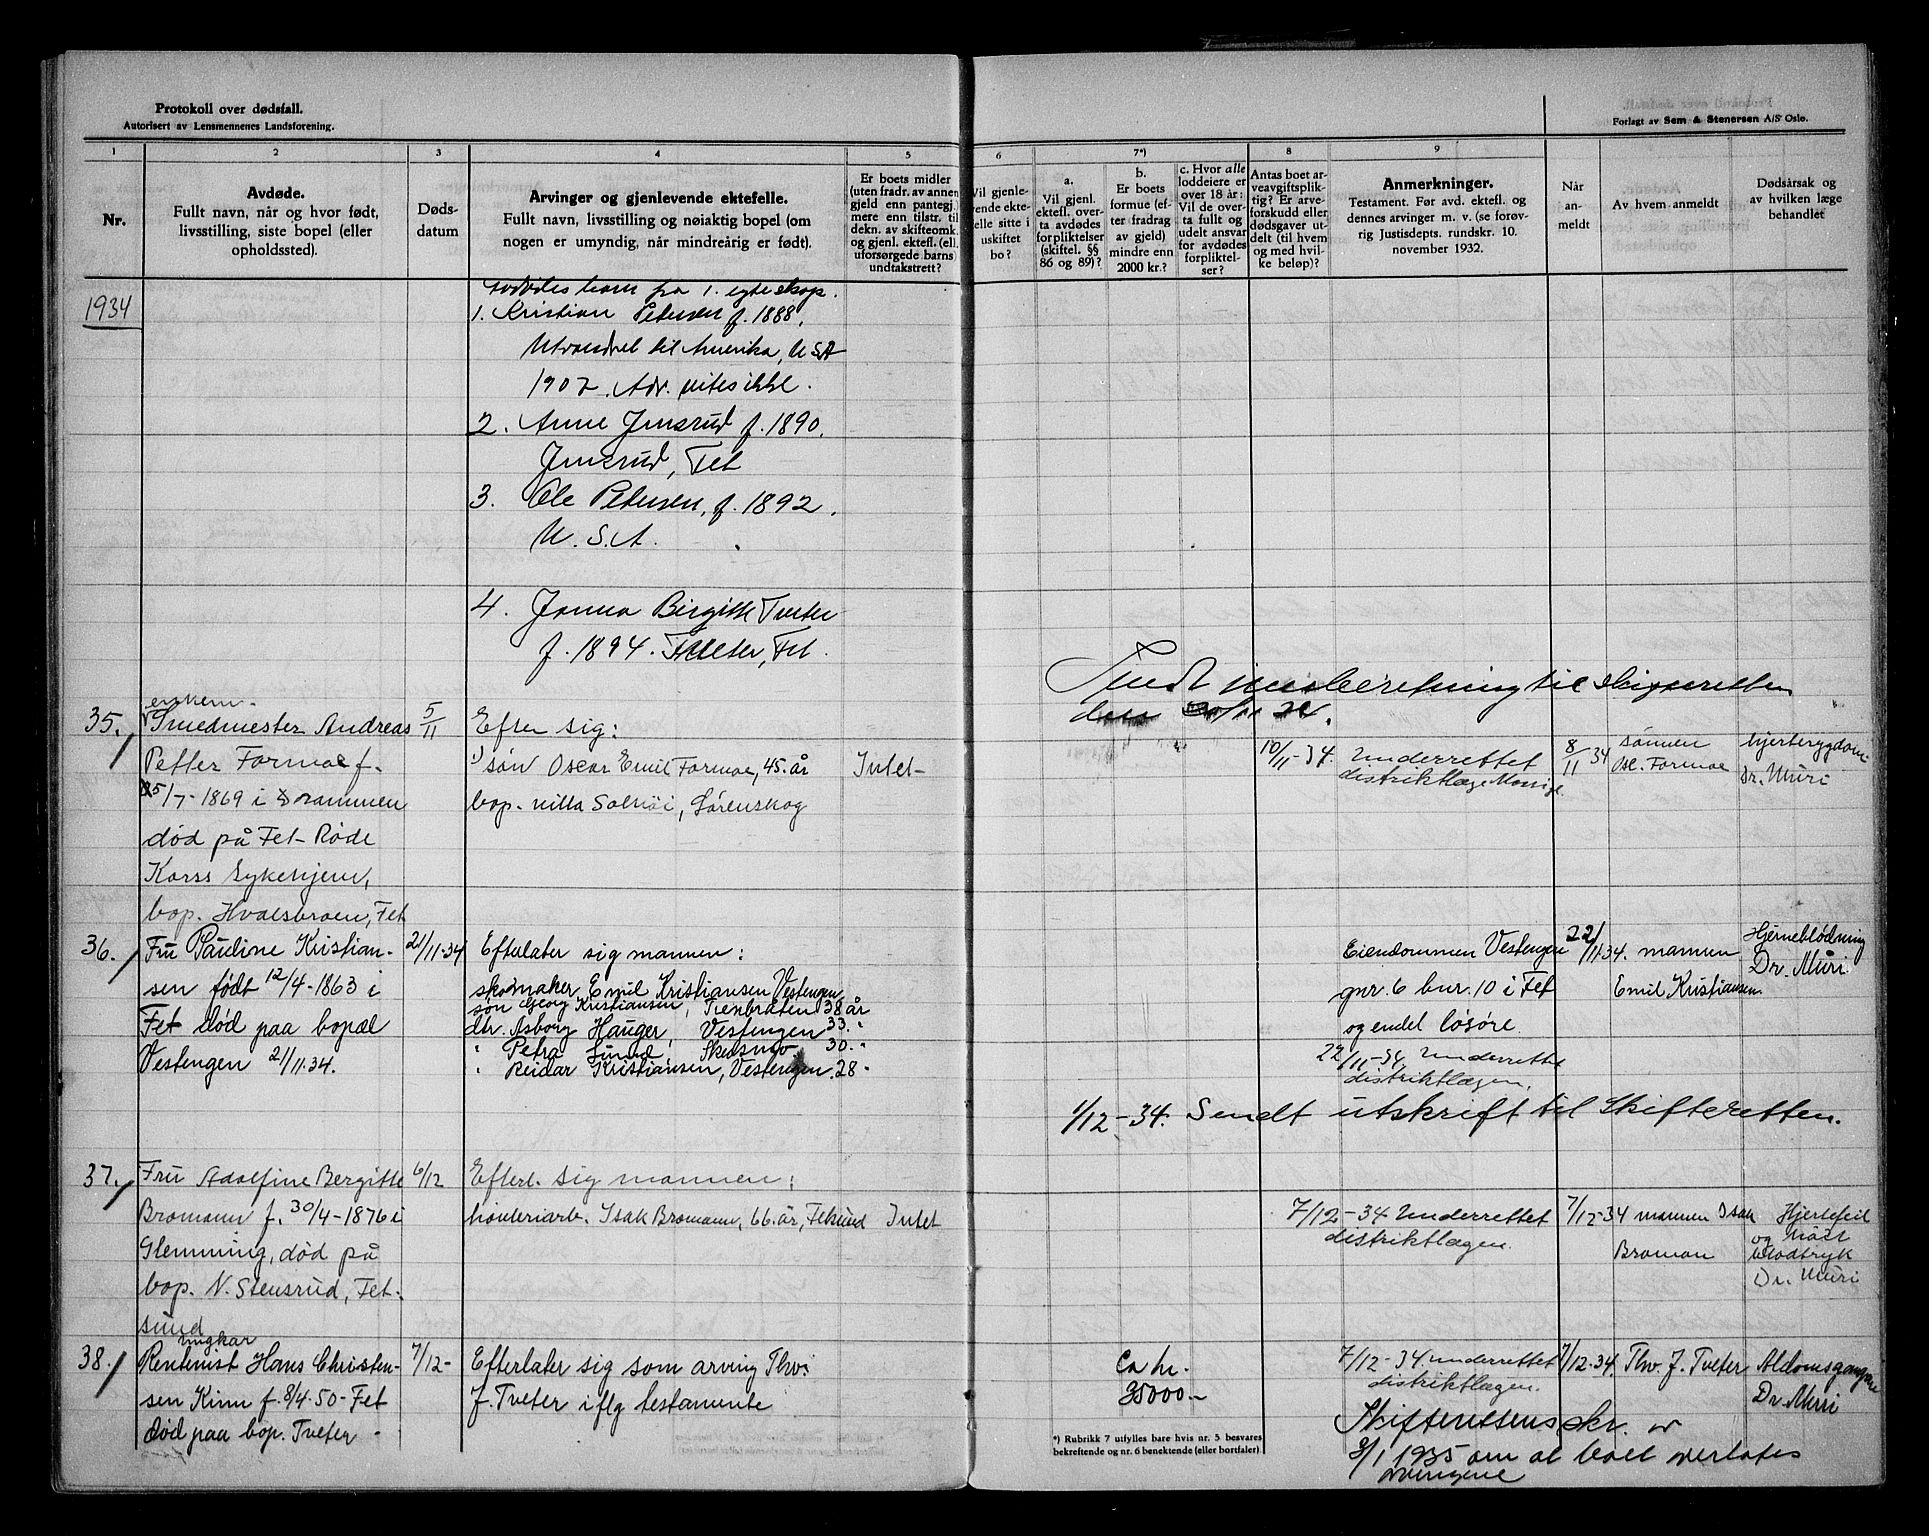 Protokoll over dødsfall.
Autorisert av Lensmennenes Landsforening.
Forlagt av Sem & Stenersen A/S Oslo.
1 2 3 4 5 6 7*) 8 9
Nr.
Avdøde.
Fullt navn, når og hvor født,
livsstilling, siste bopel (eller
opholdssted).
Døds-
datum
Arvinger og gjenlevende ektefelle.
Fullt navn, livsstilling og nøiaktig bopel (om
nogen er umyndig, når mindreårig er født).
Er boets midler
(uten fradr. av annen
gjeld enn pantegj.)
mere enn tilstr. til
dekn. av skifteomk.
og gjenl. ektefl. (ell.
uforsørgede barns)
undtakstrett?
Vil gjenle-
vende ekte-
felle sitte i
uskiftet
bo?
a.
Vil gjenl.
ektefl. over-
ta avdødes
forpliktelser
(skiftel. §§
86 og 89)?
b.
Er boets
formue (ef-
ter fradrag
av gjeld)
mindre enn
2000 kr.?
c. Hvor alle
loddeiere er
over 18 år:
Vil de over-
ta fullt og
udelt ansvar
for avdødes
forpliktel-
ser?
Antas boet ar-
veavgiftsplik-
tig? Er arve-
forskudd eller
dødsgaver ut-
delt (til hvem
og med hvil-
ke beløp)?
Anmerkninger.
Testament. Før avd. ektefl. og
dennes arvinger m. v. (se forøv-
rig Justisdepts. rundskr. 10.
november 1932.
Når
an-
meldt
Av hvem anmeldt
Dødsårsak og
av hvilken læge
behandlet
1934
Avdødes barn fra 1. egteskap.
1. Kristian Petersen f. 1888,
Utvandret til Amerika, USA
1907. Adr. vites ikke.
2. Anne Jmsrud f. 1890.
Jmsrud, Fet
3. Ole Petersen, f. 1892.
U. S. A.
4. Janna Birgitte Tveter
f. 1894. Tveter, Fet.
Sendt innberetning til skifteretten
den
35. enkem.
Smedmester Andreas
Petter Formoe f.
25/7-1869 i Drammen
død på Fet Røde
Korss Sykehjem,
bop. Hvalsbraen, Fet
5/11
Efter sig:
1) søn Oscar Emil Formoe, 45 år
bop. villa Solhøi, Lørenskog
Intet
10/11-34. Underrettet
distriktlæge
8/11 34 sønnen
Osc. Formoe
hjertesygdom
Dr. Muri
36. Fru Pauline Kristian-
sen født 12/4-1863 i
Fet død paa bopæl
Vestengen 21/11.34.
21/11-34
Efterlater sig mannen:
skomaker Emil Kristiansen Vestengen
søn Georg Kristiansen, Tienbråten 38 år
dtr. Asborg Hauger, Vestengen 33 "
" Petra Sunød, Skedsmo 30 "
" Reidar Kristiansen, Vestengen 28 "
Eiendommen Vestengen
gnr. 6 bnr. 10 i Fet
og endel løsøre.
22/11-34 Underrettet
distriktlægen.
22/11.34. mannen
Emil Kristiansen
Hjerneblødning
Dr. Muri
1/12-34. Sendt utskrift til Skifteretten.
37. Fru Adolfine Bergitte
Bromann f. 30/4-1876 i
Glemming, død på
bop. N. Stensrud, Fet-
sund
6/12
Efterl. sig mannen:
hønseriarb. Isak Bromann, 66 år, Fetsund
Intet
7/12-34 Underrettet
distriktlægen.
7/12-34 mannen Isak
Broman
Hjertefeil
og høit
blodtryk
Dr. Muri
38. Ungkar
Rentenist Hans Christen-
sen Kinn f. 8/4.50-Fet
død paa bop. Tveter.
7/12-
Efterlater sig som arving Thv.
J. Tveter iflg testamente
Ca kr.
35000.-
7/12-34 underrettet
distriktlægen.
7/12.34. Thv. J. Tveter
Aldomsgangen
Dr. Muri
Skifterettens skr. av
3/1 1935 om at boet overlates
arvingene
*) Rubrikk 7 utfylles bare hvis nr. 5 besvares
bekreftende og nr. 6 benektende (eller bortfaler)